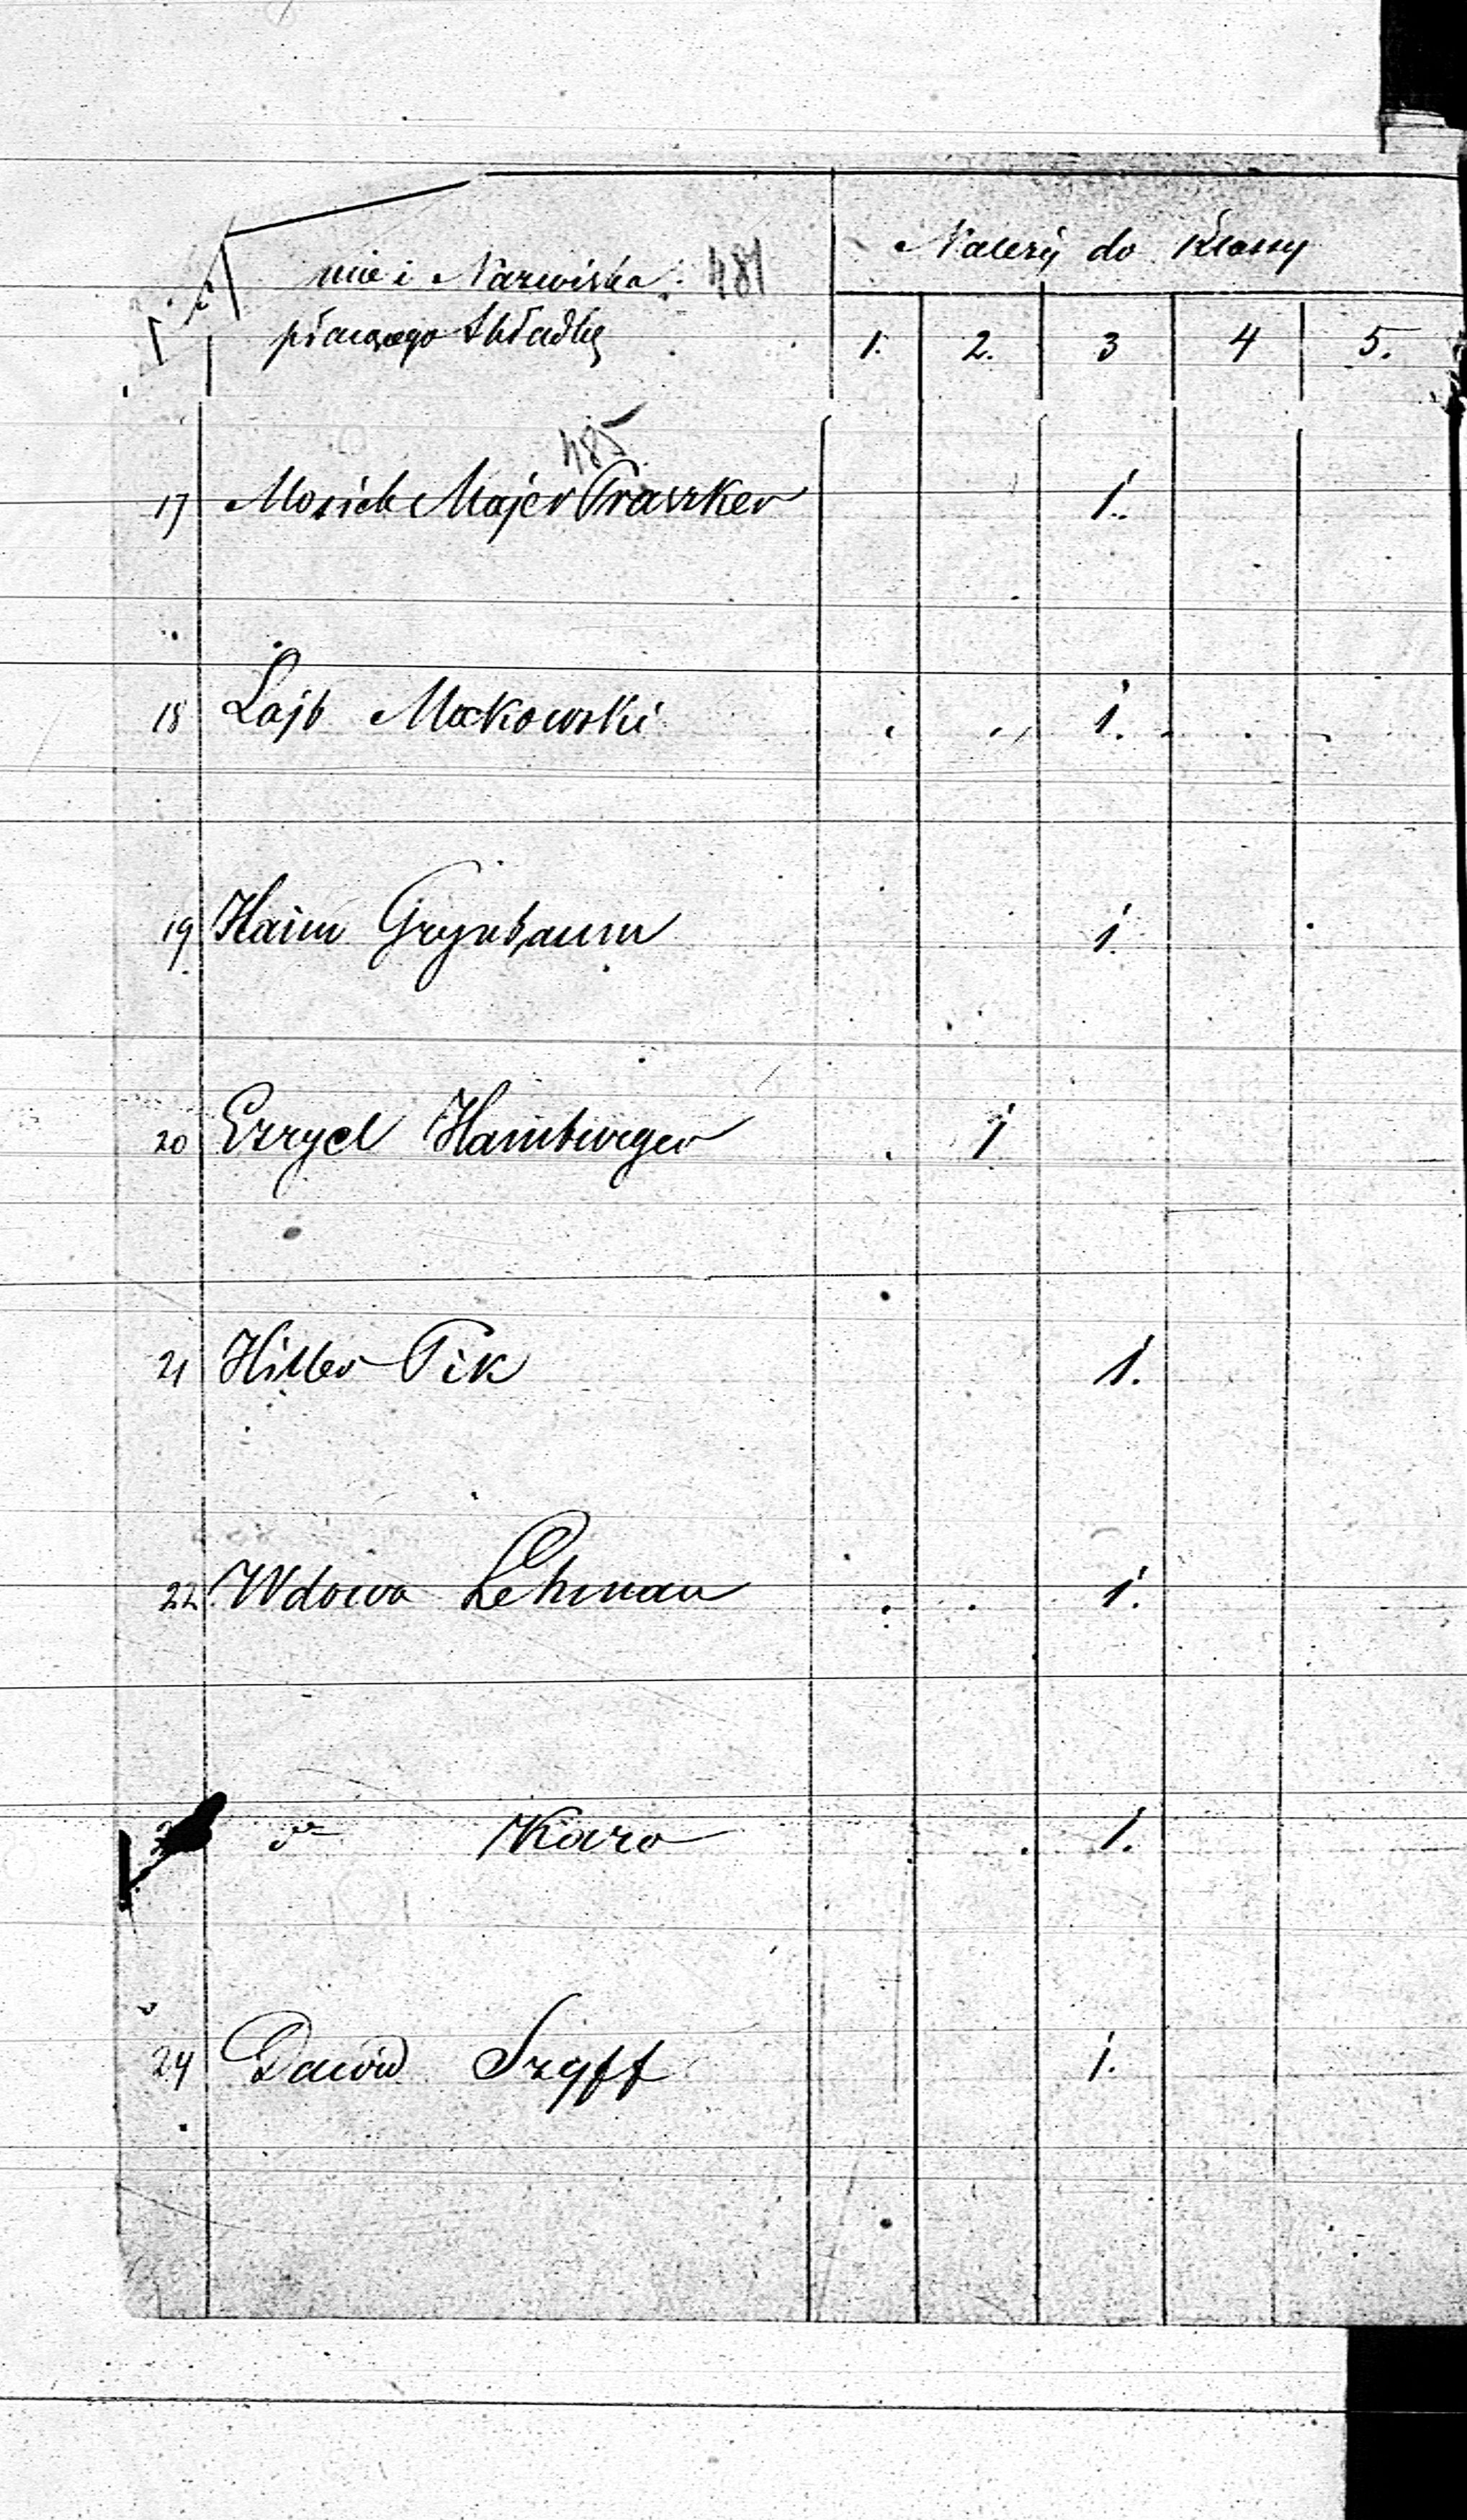 mie i Nazwisko 481
płacącego Składkę
Należy do Klassy
1. 2. 3 4 5.
485
17 Mosiek Majer Praszker 1.
18 Lajb Makowski 1.
19 Haim Grynbaum 1.
20 Ezryel Hamburger 1
21 Hiller Pik 1.
22 Wdowa Lehman 1.
Karo 1.
24 Dawid Szyff 1.